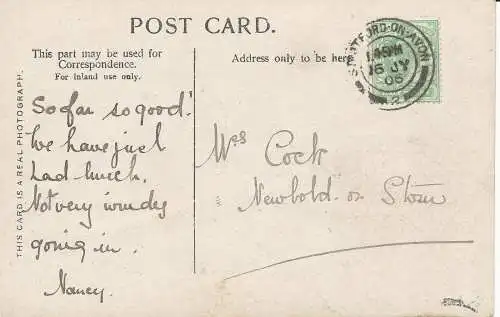 POST CARD.
This part may be used for
Correspondence.
For Inland use only.
Address only to be here
THIS CARD IS A REAL PHOTOGRAPH.
STRATFORD-ON-AVON
16 JY
06
2
So far so good!
We have just
had lunch.
Not very windy
going in.
Nancy.
Mrs Cock
Newbold on Stour